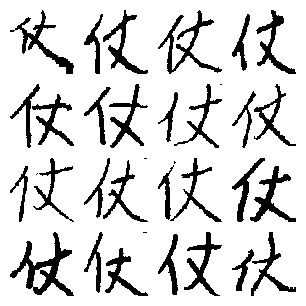 仗仗仗仗
仗仗仗仗
仗仗仗仗
仗仗仗仗